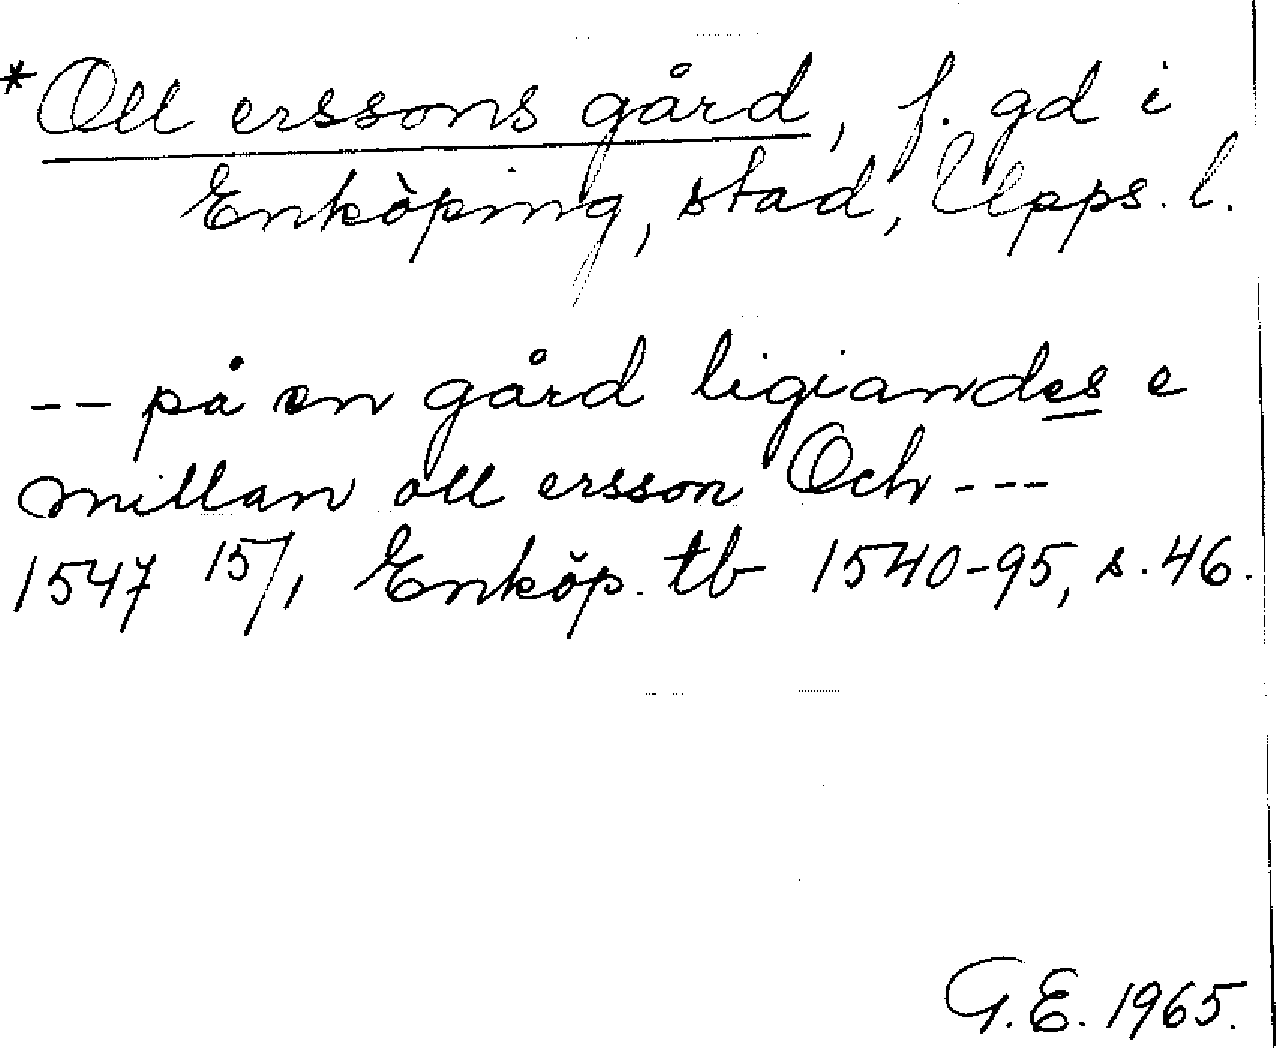 *Oll erssons gård, f. gd i
Enköping, stad, Upps. l.
-- på en gård ligiandes e
millan oll ersson Och ---
1547 15/1 Enköp. tb 1540-95, s. 46.
G.E. 1965.